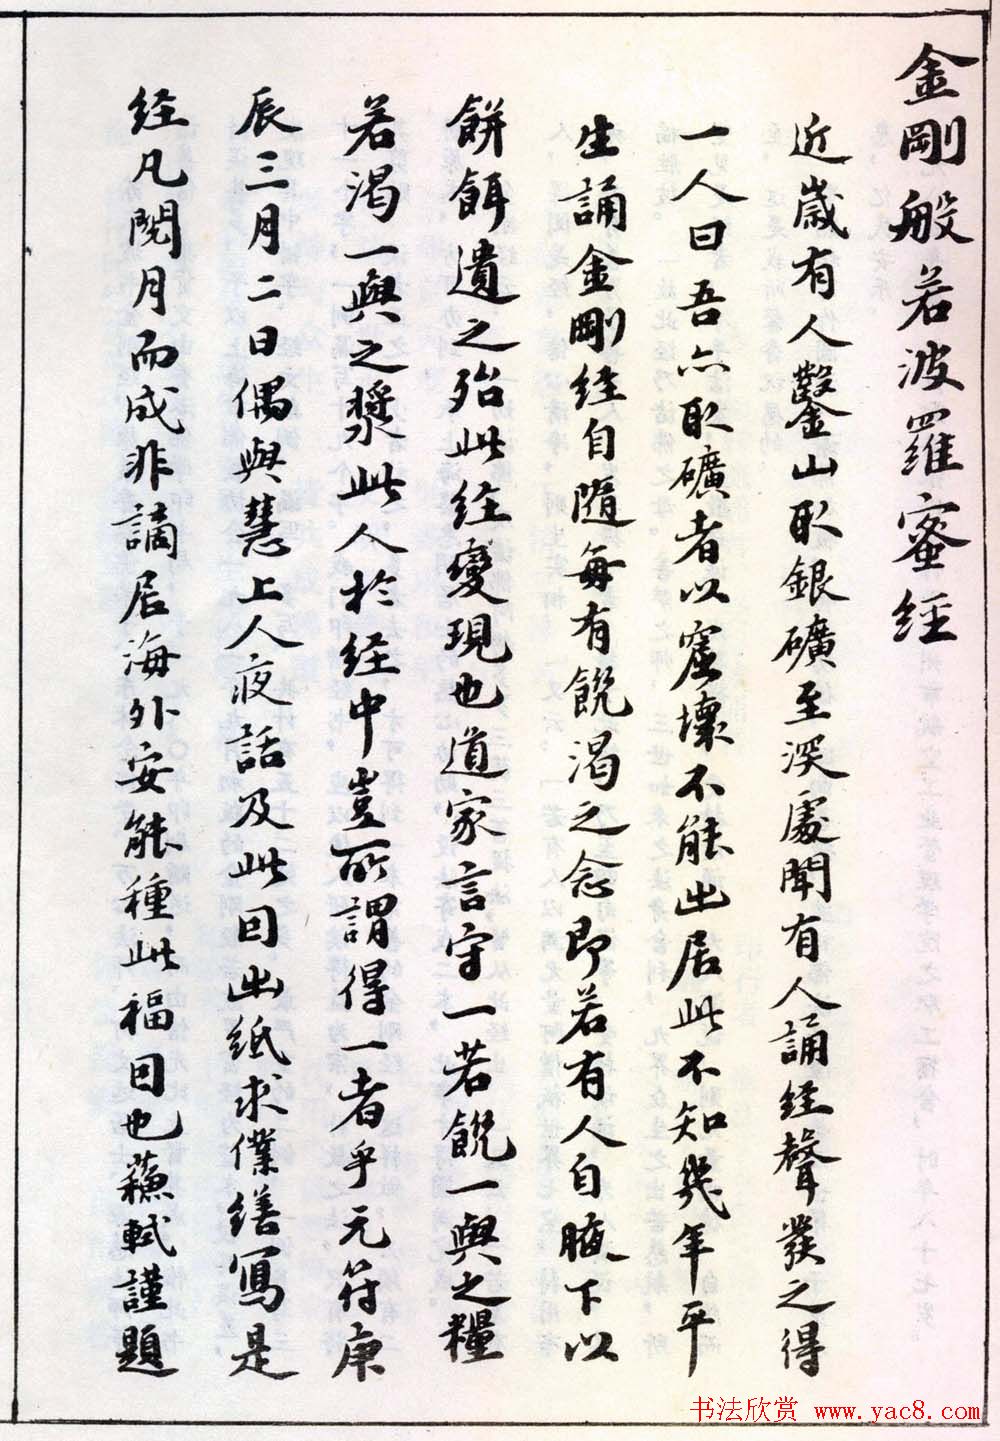 金剛般若波羅蜜經
近歲有人鑿山取銀礦至深處聞有人誦經聲發之得
一人曰吾亦取礦者以窟壞不能出居此不知幾年平
生誦金剛經自隨每有饑渴之念即若有人自腋下以
餅餌遺之殆此經變現也道家言守一若饑一與之糧
若渴一與之漿此人於經中豈所謂得一者乎元符庚
辰三月二日偶與慧上人夜話及此因出紙求僕繕寫是
經凡閱月而成非謫居海外安能種此福因也蘇軾謹題
书法欣赏 www.yac8.com